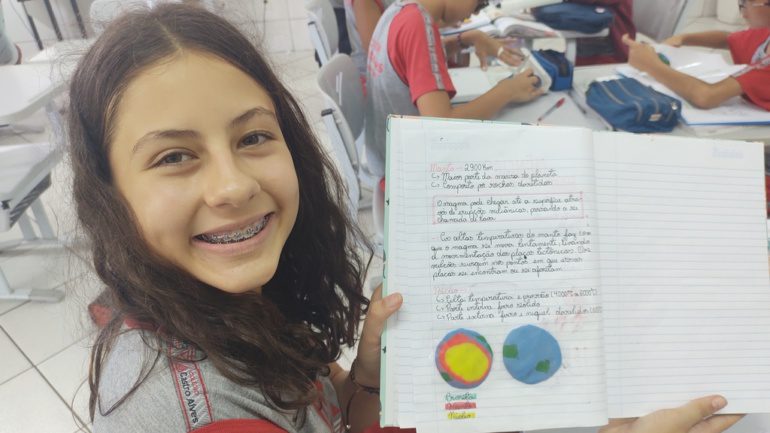 Manto - 2900 Km
↳ Maior parte da massa do planeta
↳ Composto por rochas derretidas
O magma pode chegar até a superfície atra-
vés de erupções vulcânicas, passando a ser
chamado de lava
As altas temperaturas do manto faz com
que o magma se mova lentamente, levando
à movimentação das placas tectônicas. Os
vulcões surgem nos pontos em que essas
placas se encontram ou se afastam
Núcleo -
↳ Alta temperatura e pressão (4000°C a 6000°C)
↳ Parte interna ferro sólido
↳ Parte externa ferro e níquel derretidos
Crosta
Manto
Núcleo
Castro Alves